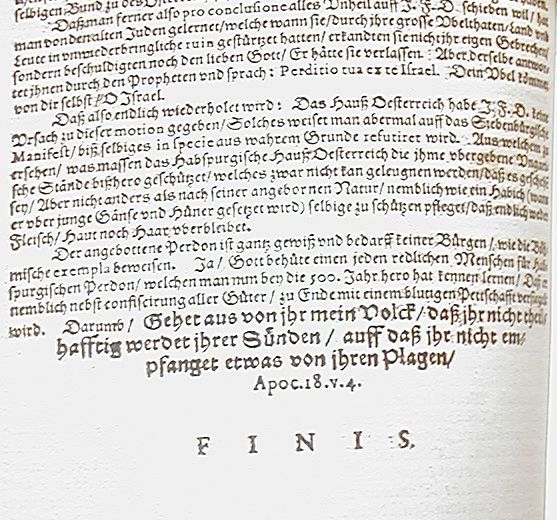 selbigen Bund zu des
Daß man ferner also pro conclusione alles Unheil auff J. F. D. schieben wil/ hat
man von den alten Juden gelernet/ welche wann sie/ durch ihre grosse Vbelthaten/ Land und
Leute in unwiederbringliche ruin gestürtzet hatten/ erkandten sie nicht ihr eigen Gebrechen
sondern beschuldigten noch den lieben Gott/ Er hätte sie verlassen. Aber derselbe antwor-
tet ihnen durch den Propheten und sprach: Perditio tua ex te Israel. Dein Vbel kömmet
von dir selbst/ O Israel.
Daß also endlich wiederholet wird: Das Hauß Oesterreich habe J. F. D. keine
Vrsach zu dieser motion gegeben/ Solches weiset man abermal auff das Siebenbürgische
Manifest/ biß selbiges in specie aus wahrem Grunde refutiret wird. Aus welchem zu
ersehen/ was massen das Habspurgische Hauß Oesterreich die jhme vbergebene Vngari-
sche Stände bißhero geschützet/ welches zwar nicht kan geleugnen werden/ daß es geschehen
sey/ Aber nicht anders als nach seiner angebornen Natur/ nemblich wie ein Habich (wann
er vber junge Gänse vnd Hüner gesetzet wird) selbige zu schützen pfleget/ daß endlich weder
Fleisch/ Haut noch Haar vberbleibet.
Der angebottene Perdon ist gantz gewiß vnd bedarff keiner Bürgen/ wie die Böh-
mische exempla beweisen. Ja/ Gott behüte einen jeden redlichen Menschen für Hab-
spurgischen Perdon/ welchen man nun bey die 300. Jahr hero hat kennen lernen/ Daß er
nemblich nebst confiscirung aller Güter/ zu Ende mit einem blutigen Pettschafft versiegelt
wird. Darumb/ Gehet aus von jhr mein Volck/ daß jhr nicht theil-
hafftig werdet jhrer Sünden/ auff daß jhr nicht em-
pfanget etwas von jhren Plagen/
Apoc. 18. v. 4.
F I N I S.